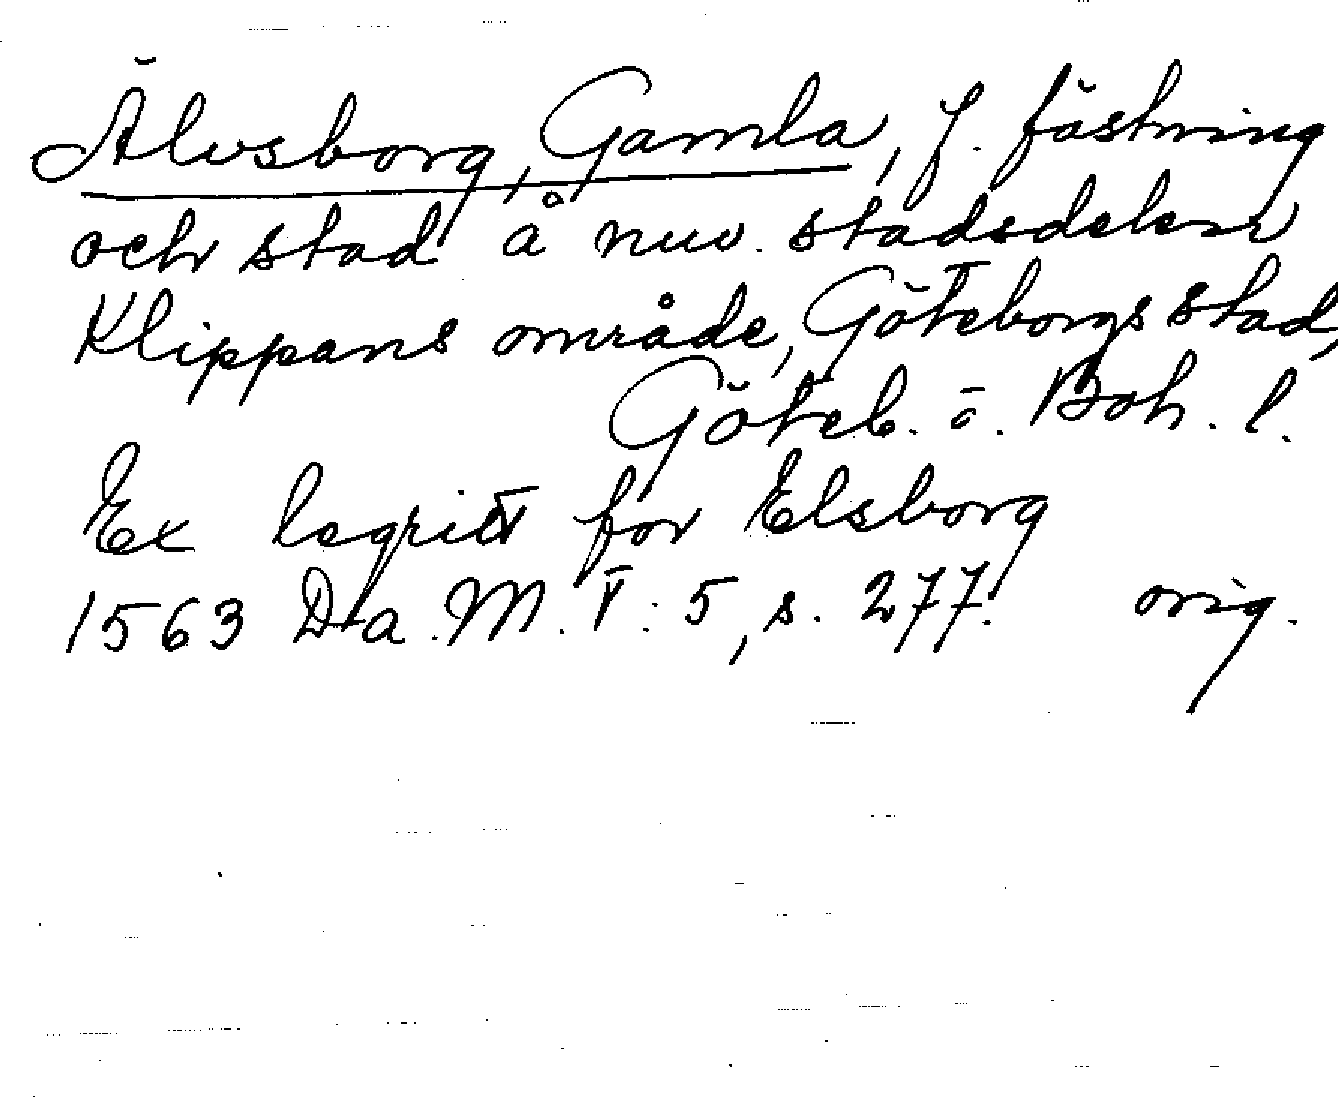 Älvsborg, Gamla, f. fästning
och stad å nuv. stadsdelen
Klippans område, Göteborgs stad,
Göteb. o. Boh. l.
Ex legritt for Elsborg
1563 Da. M. V: 5, s. 277. orig.